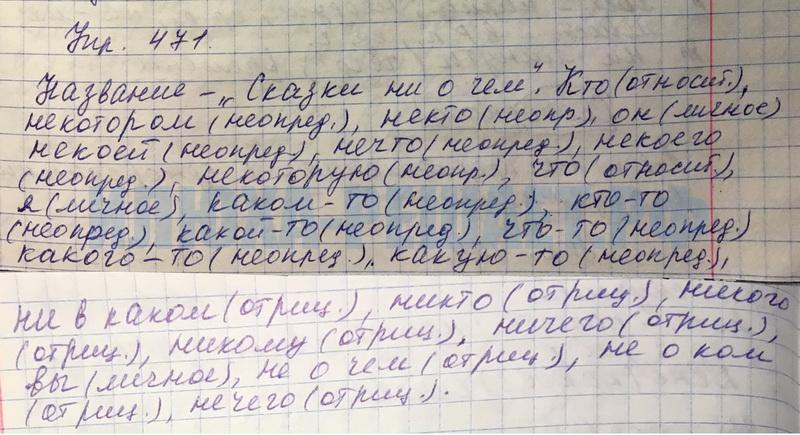 Упр. 471.
Название – „Сказки ни о чем". Кто (относит.),
некотором (неопред.), некто (неопр.), он (личное)
некоей (неопред.), нечто (неопред.), некоего
(неопред.), некоторую (неопр.), что (относит.),
я (личное), каком-то (неопред.), кто-то
(неопред.), какой-то (неопред.), что-то (неопред.)
какого-то (неопред.), какую-то (неопред.),
ни в каком (отриц.), никто (отриц.), никого
(отриц.), никому (отриц.), ничего (отриц.),
вы (личное), не о чем (отриц.), не о ком
(отриц.), нечего (отриц.).